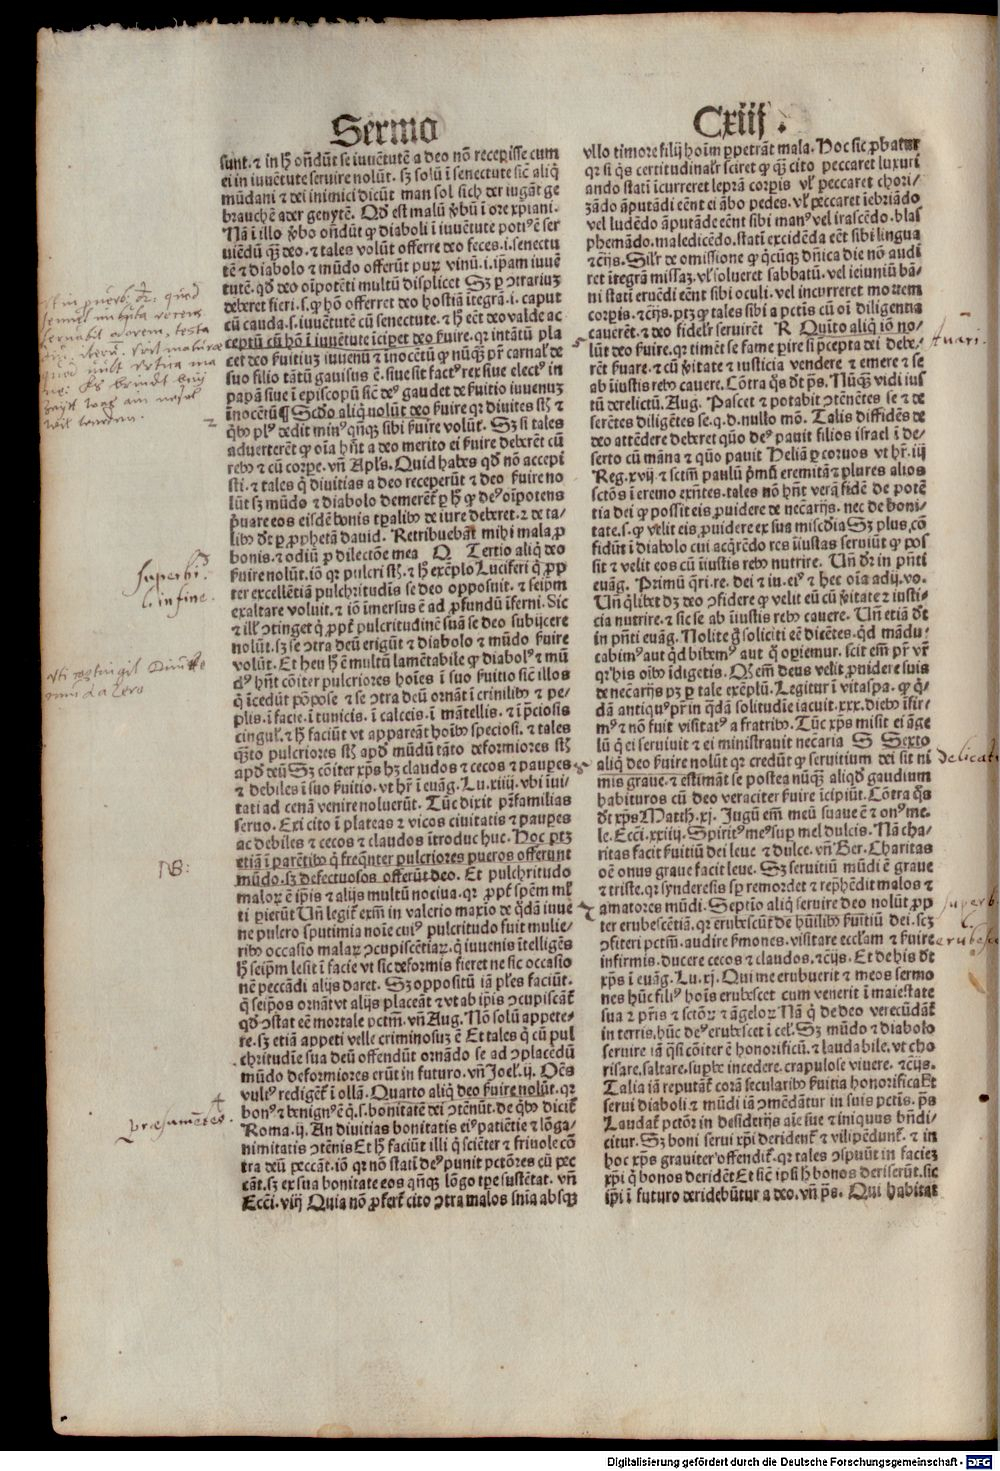 Sermo
Cxiij.
sunt. ⁊ in h̄ oñdūt se iuuētutē a deo nō recepisse cum
ei in iuuētute seruire nolūt. sꝫ solū ī senectute sic aliq̇
mūdani ⁊ dei inimici dicūt man sol sich der iugāt ge
brauchē ader genytē. Qd̄ est malū ꝟbū ī ore xpiani.
Nā ī illo ꝟbo oñdūt ꝙ diaboli ī iuuētute potiꝰ ē ser
uiēdū q̄ꝫ deo. ⁊ tales volūt offerre deo feces .i. senectu
tē ⁊ diabolo ⁊ mūdo offerūt purꝫ vinū .i. ip̄am iuuē
tutē. qd̄ deo oīpotēti multū displicet Sꝫ ꝑ ꝯtrariuꝫ
deberet fieri .s. ꝙ hō offerret deo hostiā ītegrā .i. caput
cū cauda .s. iuuētutē cū senectute. ⁊ h̄ eēt deo valde ac
ceptū cū hō ī iuuētute īciꝑet deo ẜuire. qr intātū pla
cet deo ẜuitiuꝫ iuuenū ⁊ īnocētū ꝙ nūq̄ꝫ pr̄ carnal̓ de
suo filio tātū gauisus ē. siue sit factꝰ rex siue electꝰ in
papā siue ī episcopū sic̄ deꝰ gaudet de ẜuitio iuuenuꝫ
īnocētū ¶ Scd̄o aliq̇ volūt deo ẜuire qr diuites sūt ⁊
q̇bꝰ plꝰ dedit minꝰ qn̄qꝫ sibi ẜuire volūt. Sꝫ si tales
aduerterēt ꝙ oīa hn̄t a deo merito ei ẜuire deberēt cū
rebꝰ ⁊ cū corꝑe. vn̄ Apl̄s. Quid habes qd̄ nō accepi
sti. ⁊ tales q̇ diuitias a deo receperūt ⁊ deo ẜuire no
lūt sꝫ mūdo ⁊ diabolo demerēt̄ ꝑ h̄ ꝙ deꝰ oīpotens
p̄uare eos eisdē bonis tꝑalibꝰ de iure deberet. ⁊ de ta-
libꝰ dt̄ ꝑ ꝓphetā dauid. Retribuebāt mihi mala ꝓ
bonis. ⁊ odiū ꝓ dilectōe mea Q Tertio aliq̇ deo
ẜuire nolūt. iō qr pulcri sūt. ⁊ h̄ exēplo Luciferi q̇ ꝓp
ter excellētiā pulchritudīs se deo opposuit. ⁊ seip̄m
exaltare voluit. ⁊ iō īmersus ē ad ꝓfundū īferni. Sic
⁊ ill̓ ꝯtinget q̇ ꝓpt̓ pulcritudinē suā se deo subijcere
nolūt. sꝫ se ꝯtra deū erigūt ⁊ diabolo ⁊ mūdo ẜuire
volūt. Et heu h̄ ē multū lamētabile ꝙ diabolꝰ ⁊ mū
dꝰ hn̄t cōiter pulcriores hoīes ī suo ẜuitio sic̄ illos
q̇ īcedūt pōpose ⁊ se ꝯtra deū ornāt ī crinibꝰ ⁊ pe-
plis. ī facie. ī tunicis. ī calceis. ī mātellis. ⁊ ī p̄ciosis
cingul̓. ⁊ h̄ faciūt vt appareāt hoībꝰ speciosi. ⁊ tales
q̄ꝫto pulcriores sūt apd̄ mūdū tāto deformiores sūt
apd̄ deū Sꝫ cōiter xp̄s hꝫ claudos ⁊ cecos ⁊ pauꝑes
⁊ debiles ī suo ẜuitio. vt hr̄ ī euāg. Lu. xiiij. vbi īui-
tati ad cenā venire noluerūt. Tūc dixit pr̄familias
seruo. Exi cito ī plateas ⁊ vicos ciuitatis ⁊ pauꝑes
ac debiles ⁊ cecos ⁊ claudos ītroduc huc. Hoc ptꝫ
etiā ī parētibꝰ q̇ freq̄nter pulcriores pueros offerunt
mūdo. sꝫ defectuosos offerūt deo. Et pulchritudo
maloꝝ ē ip̄is ⁊ alijs multū nociua. qr ꝓpt̓ sp̄em ml̓
ti ꝑierūt Vn̄ legit̄ exm̄ in valerio maxio de q̇dā iuuē
ne pulcro sputimia noīe cuiꝰ pulcritudo fuit mulie-
ribꝰ occasio malaꝝ ꝯcupiscētiaꝝ. q̇ iuuenis ītelligēs
h̄ seip̄m lesit ī facie vt sic deformis fieret ne sic occasio
nē peccādi alijs daret. Sꝫ oppositū iā pl̓es faciūt.
q̇ seip̄os ornāt vt alijs placeāt ⁊ vt ab ip̄is ꝯcupiscāt̄
qd̄ ꝯstat eē mortale pctm̄. vn̄ Aug. Nō solū appete-
re. sꝫ etiā appeti velle criminosuꝫ ē Et tales q̇ cū pul
chritudīe sua deū offendūt ornādo se ad ꝯplacēdū
mūdo deformiores erūt in futuro. vn̄ Joel̓. ij. Oēs
vultꝰ redigent̄ ī ollā. Quarto aliq̇ deo ẜuire nolūt. qr
bonꝰ ⁊ benignꝰ ē q̇ .s. bonitatē dei ꝯtēnūt. de q̇bꝰ dicit̄
Roma. ij. An diuitias bonitatis eiꝰ patiētie ⁊ lōga-
nimitatis ꝯtēnis Et h̄ faciūt illi q̇ sciēter ⁊ friuole cō
tra deū peccāt. iō qr nō statī deꝰ punit pctōres cū pec
cāt. sꝫ ex sua bonitate eos qn̄qꝫ lōgo tꝑe sustētat. vn̄
Ecci. viij Quia nō ꝓfert̄ cito ꝯtra malos sn̄ia absqꝫ
vllo timore filij hoīm ꝑpetrāt mala. Hoc sic ꝓbatur
qr si q̇s certitudinal̓r sciret ꝙ q̄ꝫ cito peccaret luxuri
ando statī īcurreret leprā corꝑis vl̓ peccaret chori-
zādo āputādi eēnt ei ābo pedes. vl̓ peccaret īebriādo
vel ludēdo āputāde eēnt sibi manꝰ vel irascēdo. blas
phemādo. maledicēdo. statī excidēda eēt sibi lingua
⁊c̄ijs. Sil̓r de omissione ꝙ q̇cūqꝫ dn̄ica die nō audi
ret ītegrā missaꝫ. vl̓ solueret sabbatū. vel ieiuniū bā-
ni statī eruēdi eēnt sibi oculi. vel incurreret mortem
corꝑis. ⁊c̄ijs. ptꝫ ꝙ tales sibi a pctīs cū oī diligentia
cauerēt. ⁊ deo fidel̓r seruirēt R Quīto aliq̇ iō no-
lūt deo ẜuire. qr timēt se fame ꝑire si p̄cepta dei debe-
rēt ẜuare. ⁊ cū ꝟitate ⁊ iusticia vendere ⁊ emere ⁊ se
ab iniustis rebꝰ cauere. Cōtra q̇s dt̄ ps̄. Nūq̄ꝫ vidi ius
tū derelictū. Aug. Pascet ⁊ potabit ꝯtēnētes se ⁊ de
serētes diligētes se. q. d. nullo mō. Talis diffidēs de
deo attēdere deberet quō deꝰ pauit filios israel ī de-
serto cū māna ⁊ quō pauit Heliā ꝑ coruos vt hr̄. iij
Reg. xvij ⁊ sctm̄ paulū p̄mū eremitā ⁊ plures alios
sctōs ī eremo exn̄tes. tales nō hn̄t verā fidē de potē
tia dei ꝙ possit eis ꝓuidere de nec̄arijs. nec de boni-
tate .s. ꝙ velit eis ꝓuidere ex sua misc̄dia Sꝫ plus cō
fidūt ī diabolo cui acq̇rēdo res iniustas seruiūt ꝙ pos
sit ⁊ velit eos cū īiustis rebꝰ nutrire. Vn̄ dr̄ in pn̄ti
euāg. Primū q̇ri. re. dei ⁊ iu. eiꝰ ⁊ hec oīa adij. vo.
Vn̄ q̇libet dꝫ deo ꝯfidere ꝙ velit eū cū ꝟitate ⁊ iusti-
cia nutrire. ⁊ sic se ab īiustis rebꝰ cauere. Vn̄ etiā dt̄
in pn̄ti euāg. Nolite gͦ soliciti eē dicētes. qd̄ mādu-
cabimꝰ aut qd̄ bibemꝰ aut q̇ oꝑiemur. scit em̄ pr̄ vr̄
qr his oībꝰ īdigetis. Qd̄ em̄ deus velit ꝓuidere suis
de nec̄arijs ptꝫ ꝑ tale exēplū. Legitur ī vitaspa. ꝙ q̇-
dā antiqꝰ pr̄ in q̇dā solitudīe iacuit. xxx. diebꝰ īfir-
mꝰ ⁊ nō fuit visitatꝰ a fratribꝰ. Tūc xp̄s misit ei āge
lū q̇ ei seruiuit ⁊ ei ministrauit nec̄aria S Sexto
aliq̇ deo ẜuire nolūt qr credūt ꝙ seruitium dei sit ni
mis graue. ⁊ estimāt se postea nūq̄ꝫ aliqd̄ gaudium
habituros cū deo veraciter ẜuire īcipiūt. Cōtra q̇s
dt̄ xp̄s Matth. xj. Jugū em̄ meū suaue ē ⁊ onꝰ me-
le. Ecci. xxiiij. Spiritꝰ meꝰ sup mel dulcis. Nā cha-
ritas facit ẜuitiū dei leue ⁊ dulce. vn̄ Ber. Charitas
oē onus graue facit leue. Sꝫ seruitiū mūdi ē graue
⁊ triste. qr synderesis sp̄ remordet ⁊ rep̄hēdit malos ⁊
amatores mūdi. Septīo aliq̇ seruire deo nolūt ꝓp
ter erubescētiā. qr erubescūt de hūilibꝰ ẜuitiū dei. scꝫ
ꝯfiteri pctm̄. audire ẜmones. visitare eccl̓am ⁊ ẜuire
infirmis. ducere cecos ⁊ claudos. ⁊c̄ijs. Et de his dt̄
xp̄s ī euāg. Lu. xj. Qui me erubuerit ⁊ meos sermo
nes hūc filiꝰ hoīs erubescet cum venerit ī maiestate
sua ⁊ pr̄is ⁊ sctōꝝ ⁊ āgeloꝝ Nā q̇ de deo verecūdāt̄
in terris. hūc deꝰ erubescet ī cel̓. Sꝫ mūdo ⁊ diabolo
seruire iā q̄si cōiter ē honorificū. ⁊ laudabile. vt cho
risare. saltare. supbe incedere. crapulose viuere. ⁊c̄ijs.
Talia iā reputāt̄ corā secularibꝰ ẜuitia honorifica Et
serui diaboli ⁊ mūdi iā ꝯmēdātur in suis pctīs. ps̄.
Laudat̄ pctōr in desiderijs aīe sue ⁊ iniquus bn̄di-
citur. Sꝫ boni serui xp̄i dident̄ ⁊ vilipēdunt̄. ⁊ in
hoc xp̄s grauiter offendit̄. qr tales ꝯspuūt in facieꝫ
xp̄i q̇ bonos deridēt Et sic̄ ip̄i h̄ bonos deriserūt. sic
ip̄i ī futuro deridebūtur a deo. vn̄ ps̄. Qui habitat
superbi.
l. in fine.
NB:
4
præsumētes.
2
5
Auari.
6
Delicati
7
superb.
erubesc
Digitalisierung gefördert durch die Deutsche Forschungsgemeinschaft - DFG